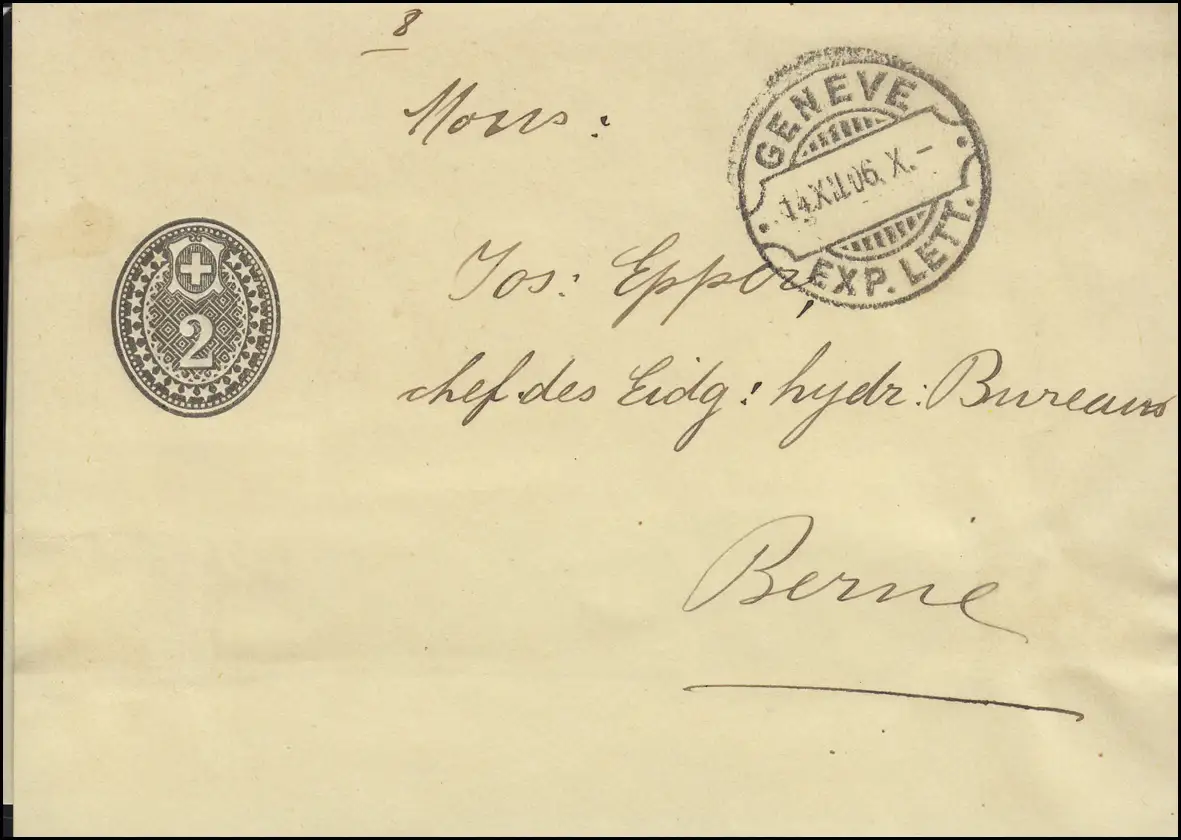 8
Mons:
GENEVE
14.XII.06. X.–
EXP. LETT.
Jos: Epper,
2
chef des Eidg: hydr: Bureaus
Berne